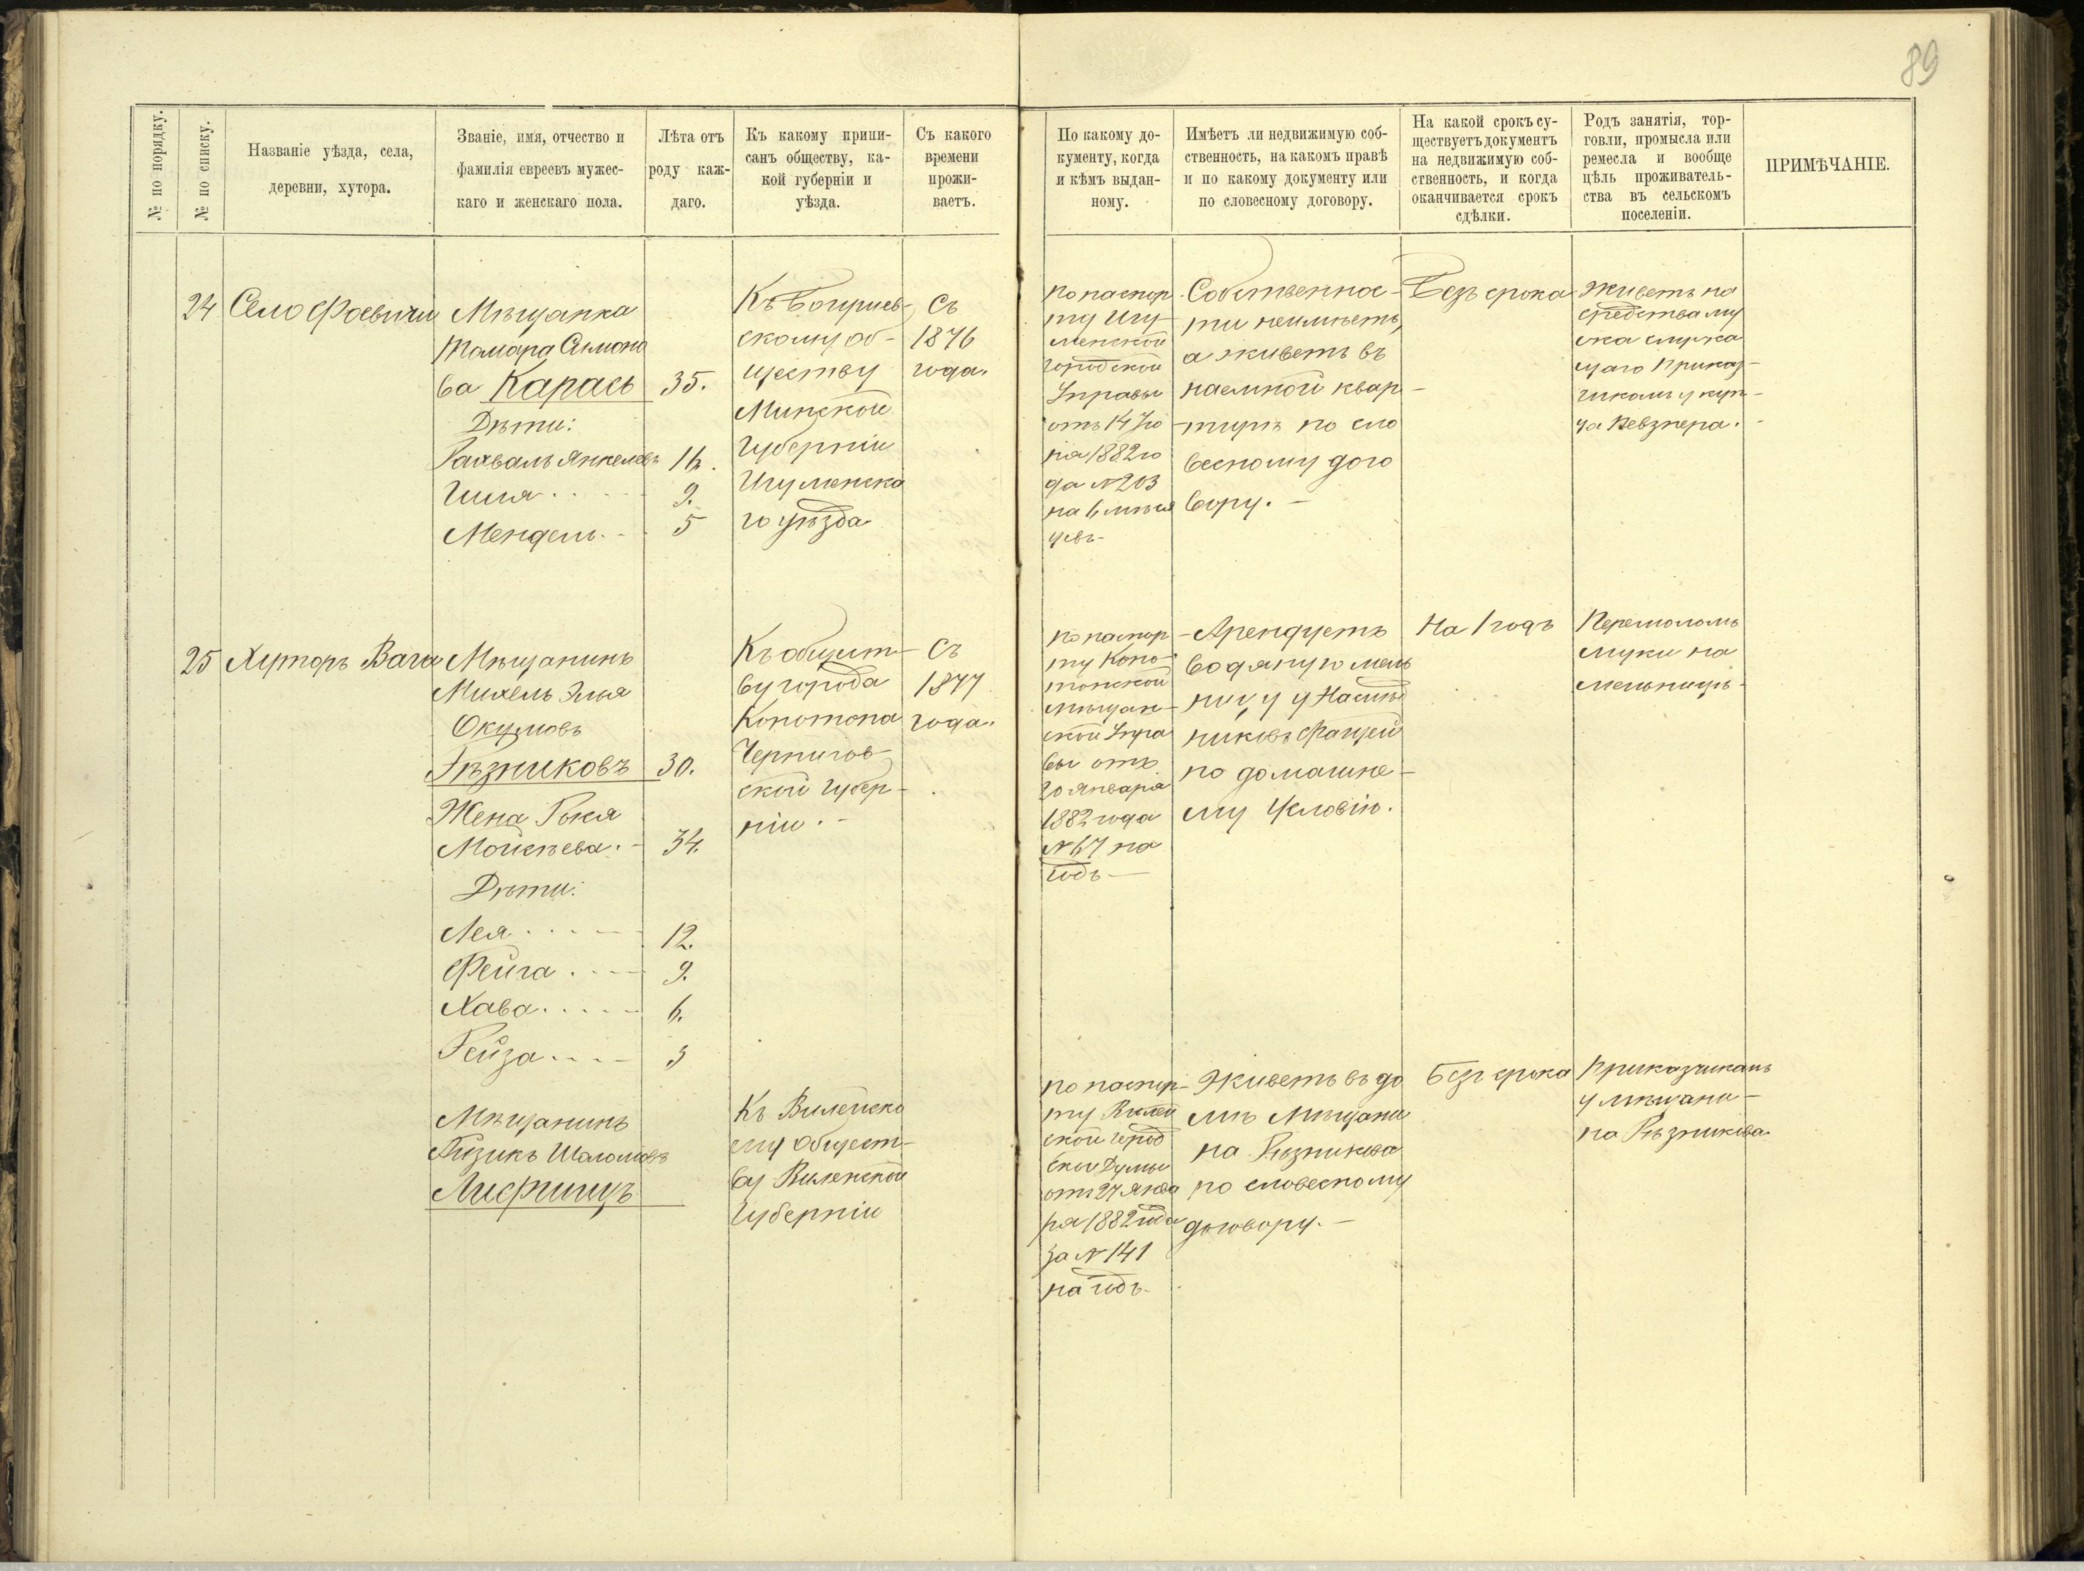 89
№ по порядку.
№ по списку.
Названіе уѣзда, села,
деревни, хутора.
Званіе, имя, отчество и
фамилія евреевъ мужес-
каго и женскаго пола.
Лѣта отъ
роду каж-
даго.
Къ какому припи-
санъ обществу, ка-
кой губерніи и
уѣзда.
Съ какого
времени
прожи-
ваетъ.
По какому до-
кументу, когда
и кѣмъ выдан-
ному.
Имѣетъ ли недвижимую соб-
ственность, на какомъ правѣ
и по какому документу или
по словесному договору.
На какой срокъ су-
ществуетъ документъ
на недвижимую соб-
ственность, и когда
оканчивается срокъ
сдѣлки.
Родъ занятія, тор-
говли, промысла или
ремесла и вообще
цѣль проживатель-
ства въ сельскомъ
поселеніи.
ПРИМѢЧАНІЕ.
24
Село Фоевичи
Мѣщанка
Тамара Симоно
ва Карась
35.
Дѣти:
16.
Гиля
9.
Мендель
5
скому об-
ществу
Минской
Губерніи
Игуменска
го уѣзда
Съ
1876
года.
по паспор
ту Игу-
менской
городской
Управы
отъ 14 Ію
ня 1882 го
да №203
на 6 мѣся
цевъ-
Собственнос-
ти неимѣетъ,
а живетъ въ
наемной квар-
тирѣ по сло
весному дого
вору.-
Безъ срока
живетъ на
средства му
жа служа
щаго Приказ-
чикомъ у куп-
ца Певзнера.
25
Хуторъ Вага
Мѣщанинъ
Михель Элья
Окумовъ
Рѣзниковъ
30.
Жена Рыся
Мойсѣева.-
34.
Дѣти:
Лея
12.
Фейга
9.
Хава
6.
Рейза
3
Къ общест-
ву города
Конотопа
Чернигов-
ской Губер-
ніи.-
Съ
1877
года.
по паспор
ту Коно-
топской
мѣщан-
ской Упра
вы отъ
20 Января
1882 года
№67 на
годъ-
Арендуетъ
водяную мель
ницу у Наслѣд
никовъ Фащей
по домашне-
му Условію.
На 1 годъ
Перемоломъ
муки на
мельницѣ-
Мѣщанинъ
Айзикъ Шоломовъ
Лифшицъ
Къ Вилейско
му Общест-
ву Виленской
Губерніи
по паспор-
ту Вилей
ской город
ской Думы
отъ 27 Янва
ря 1882 года
за №141
на годъ-
Живетъ въ до
мѣ Мѣщани
на Рѣзникова
по словесному
договору.-
Безъ срока
Приказчикомъ
у мѣщани-
на Рѣзникова